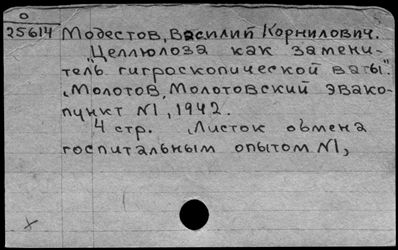 0
25614
Модестов, Василий Корнилович.
"Целлюлоза как замени-
тель гигроскопической ваты".
Молотов, Молотовский эвако-
пункт N1, 1942.
4 стр. Листок обмена
госпитальным опытом N1,
x